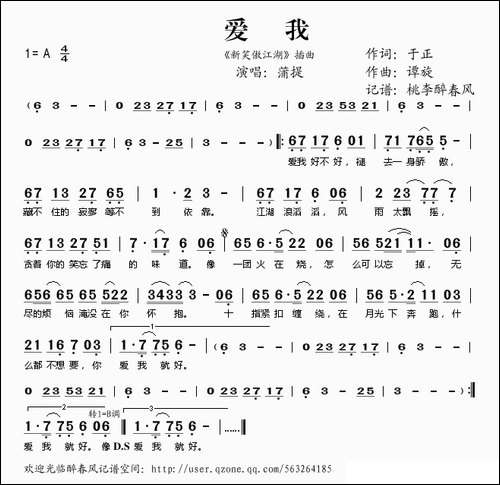 爱 我
1=A 4/4 《新笑傲江湖》插曲 作词：于正
演唱：蒲提 作曲：谭旋
记谱：桃李醉春风
(6 3 - - | 0 23 27 17 | 6 3 - - | 0 23 53 21 |
0 23 27 17 | 6·3 - 25 | 6 3 - - ) ‖: 67 17 6 01 | 71 765 5 - |
爱我 好不 好，褪 去一 身骄 傲，
67 13 27 65 | 1 · 2 3 - | 67 13 17 06 | 2 23 77 7 |
藏不 住的 寂寥 等不 到 依 靠。 江湖 浪滔 滔，风 雨 太飘 摇，
67 13 27 51 | 7 · 17 6 06 | 65 6·5 22 06 | 56 521 11· 06 |
贪着 你的 笑忘 了痛 的 味 道。像 一团 火 在 烧，怎 么可 以忘 掉，无
656 65 65 522 | 3433 3 - 06 | 65 6·5 22 06 | 56 52 11 06 |
尽的 烦 恼 淹没 在你 怀 抱。 十 指紧 扣 缠 绕，在 月光 下 奔 跑，什
21 16 7 03 | 1·7 75 6 - | (6 3 - - | 0 23 27 17 | 6 3 - - |
么都 不想 要，你 爱 我 就 好。
0 23 53 21 | 0 23 27 17 | 6·3 - 25 | 6 3 - - ) :‖
转1=B调
1·7 75 6 06 ‖ 1·7 75 6 - |……‖
爱 我 就 好。像 D.S 爱 我 就 好。
欢迎光临醉春风记谱空间：http://user.qzone.qq.com/563264185